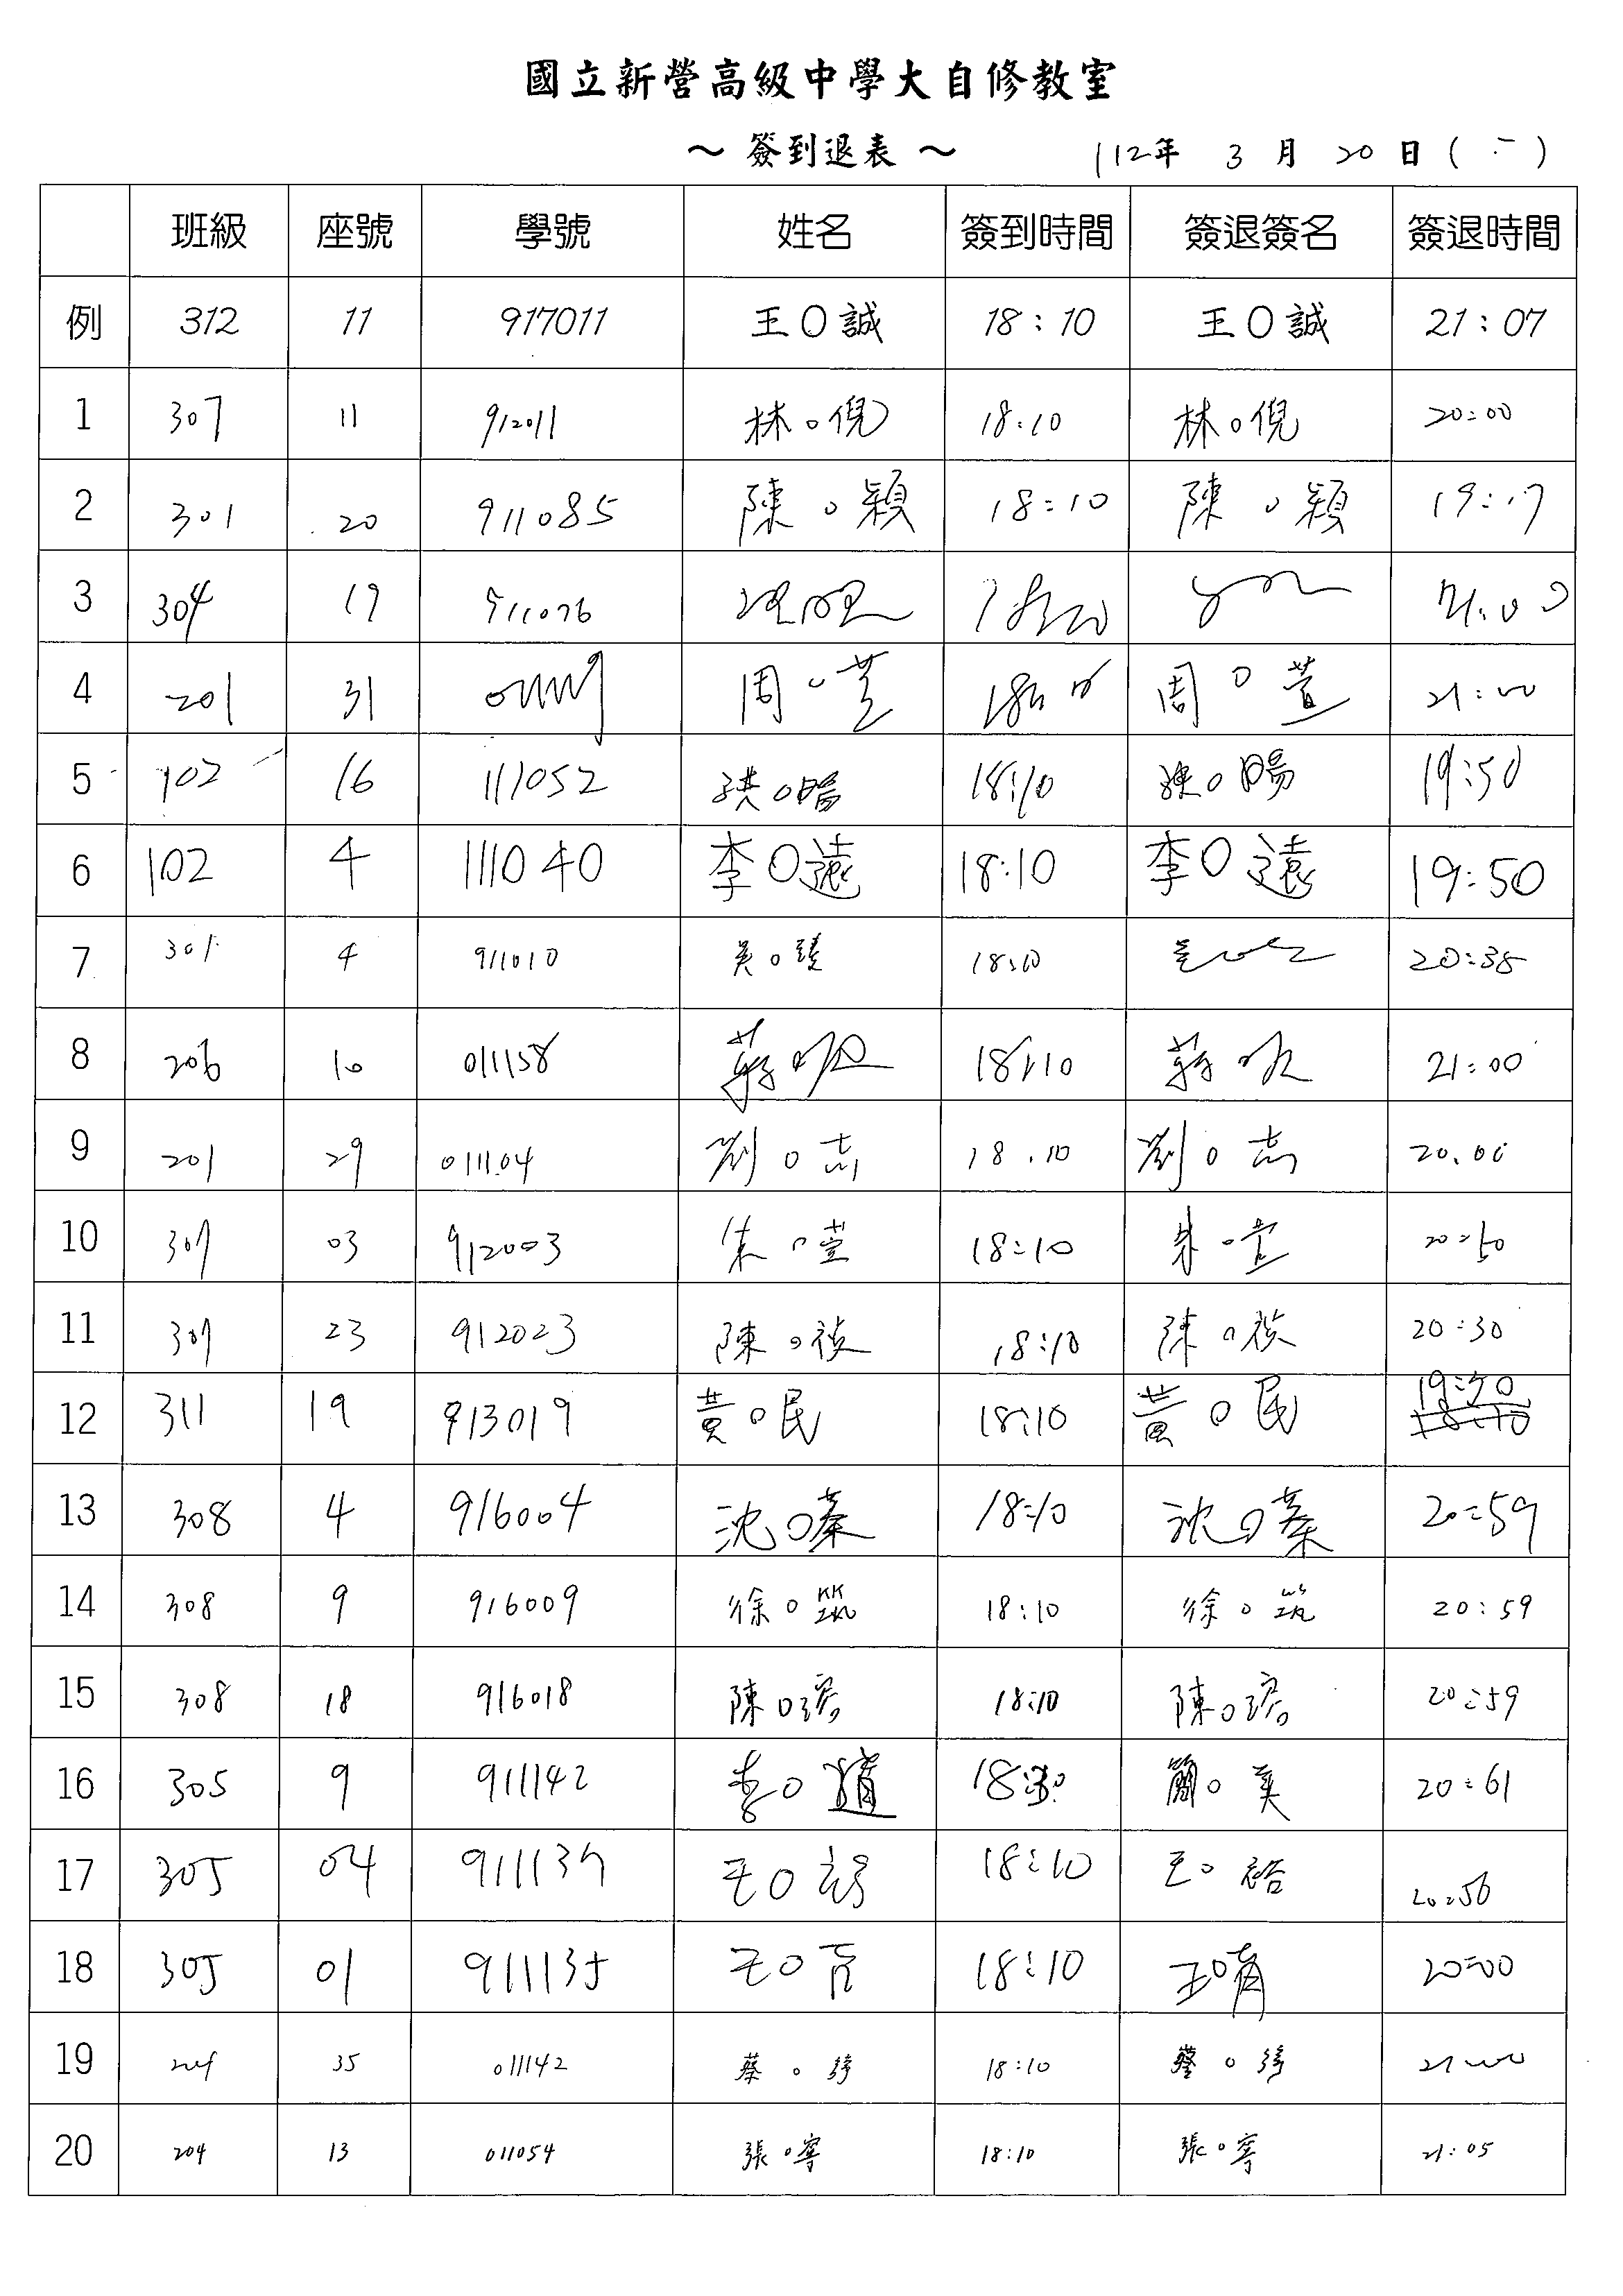 國立新營高級中學大自修教室
～ 簽到退表 ～ 112年 3 月 20 日 ( 一 )
班級 座號 學號 姓名 簽到時間 簽退簽名 簽退時間
例 312 11 917011 王O誠 18:10 王O誠 21:07
1 307 11 912011 林O倪 18:10 林O倪 20:00
2 301 20 911085 陳O穎 18:10 陳O穎 19:17
3 304 19 911076 21:00
4 201 31 周O萱 周O萱 21:00
5 102 16 111052 18:10 19:50
6 102 4 111040 李O遠 18:10 李O遠 19:50
7 301 4 911010 吳O 18:10 20:38
8 206 10 011158 蔣O 18:10 蔣O 21:00
9 201 29 011104 劉O志 18:10 劉O志 20:00
10 307 03 912003 朱O萱 18:10 朱O萱 20:50
11 307 23 912023 陳O 18:10 陳O 20:30
12 311 19 913019 黃O民 18:10 黃O民
13 308 4 916004 沈O蓁 18:10 沈O蓁 20:59
14 308 9 916009 徐O筑 18:10 徐O筑 20:59
15 308 18 916018 陳O 18:10 陳O 20:59
16 305 9 911142 李O 簡O美 20:61
17 305 04 911137 王O 18:10 王O 20:56
18 305 01 911135 王O 18:10 王O 20:00
19 204 35 011142 蔡O 18:10 蔡O 21:00
20 204 13 011054 張O寧 18:10 張O寧 21:05